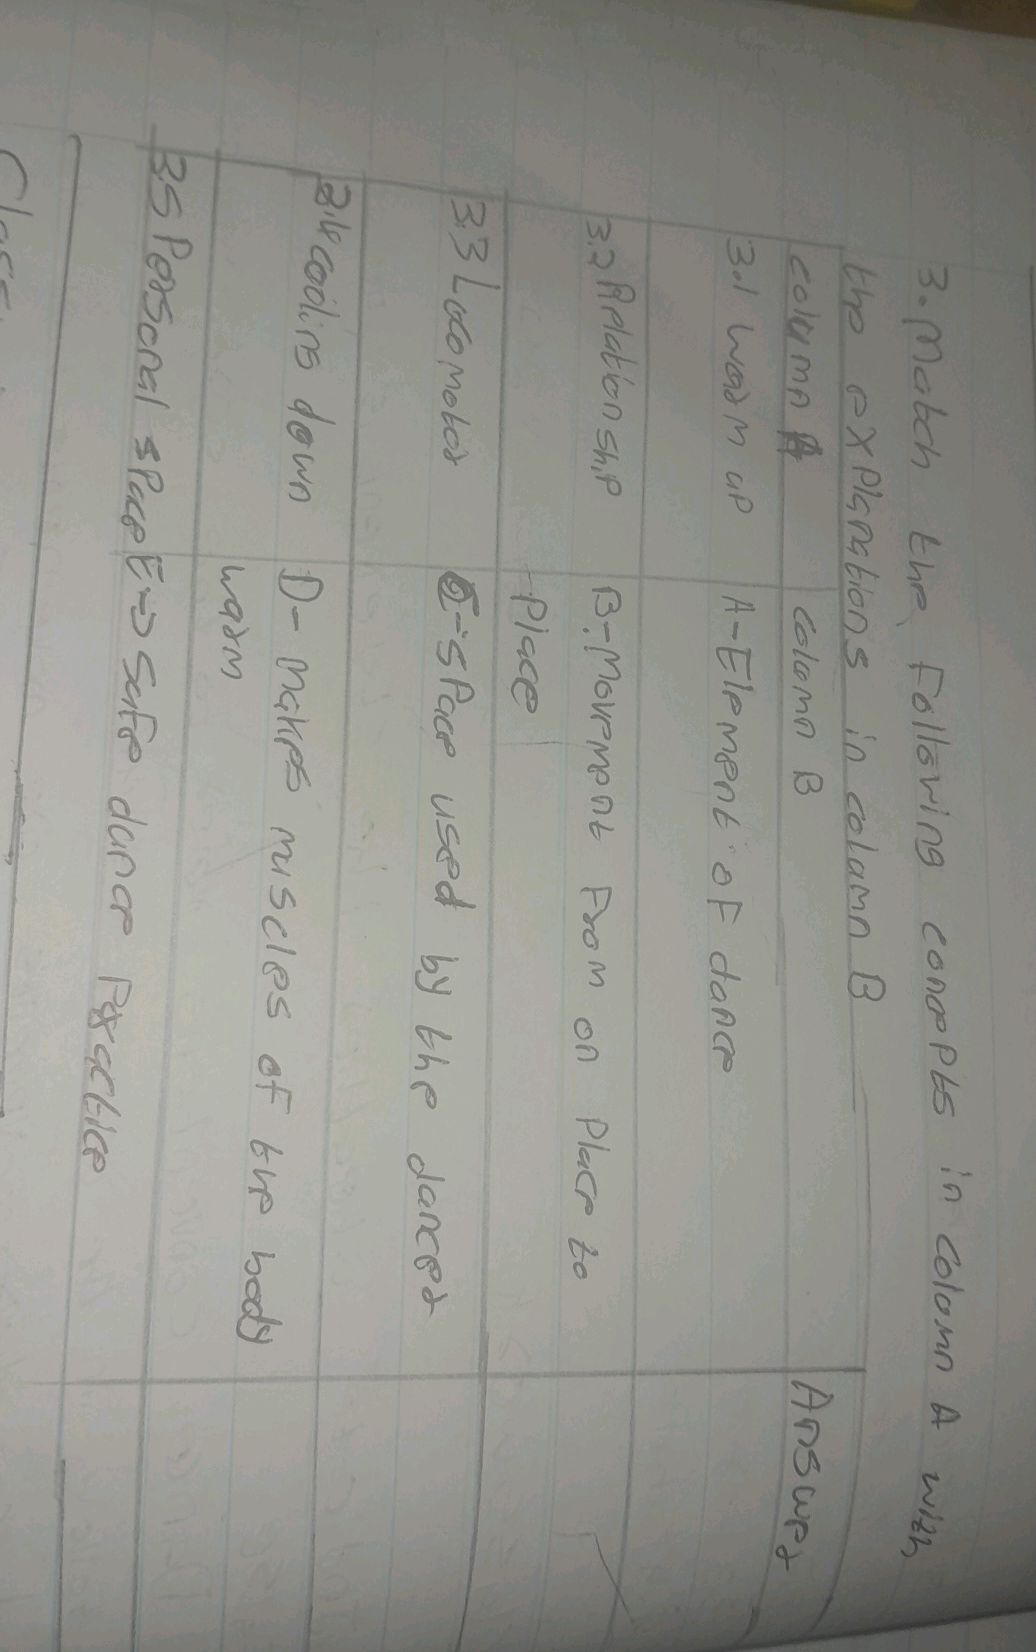 3. Match the following concepts in column A with
the explanations in column B
column A column B Answer
3.1 warm up A-Element of dance
3.2 Relationship B-Movement from on place to
place
3.3 Locomotor C-space used by the dancer
3.4 cooling down D-makes muscles of the body
warm
3.5 Personal space E-> safe dance Practice
Class